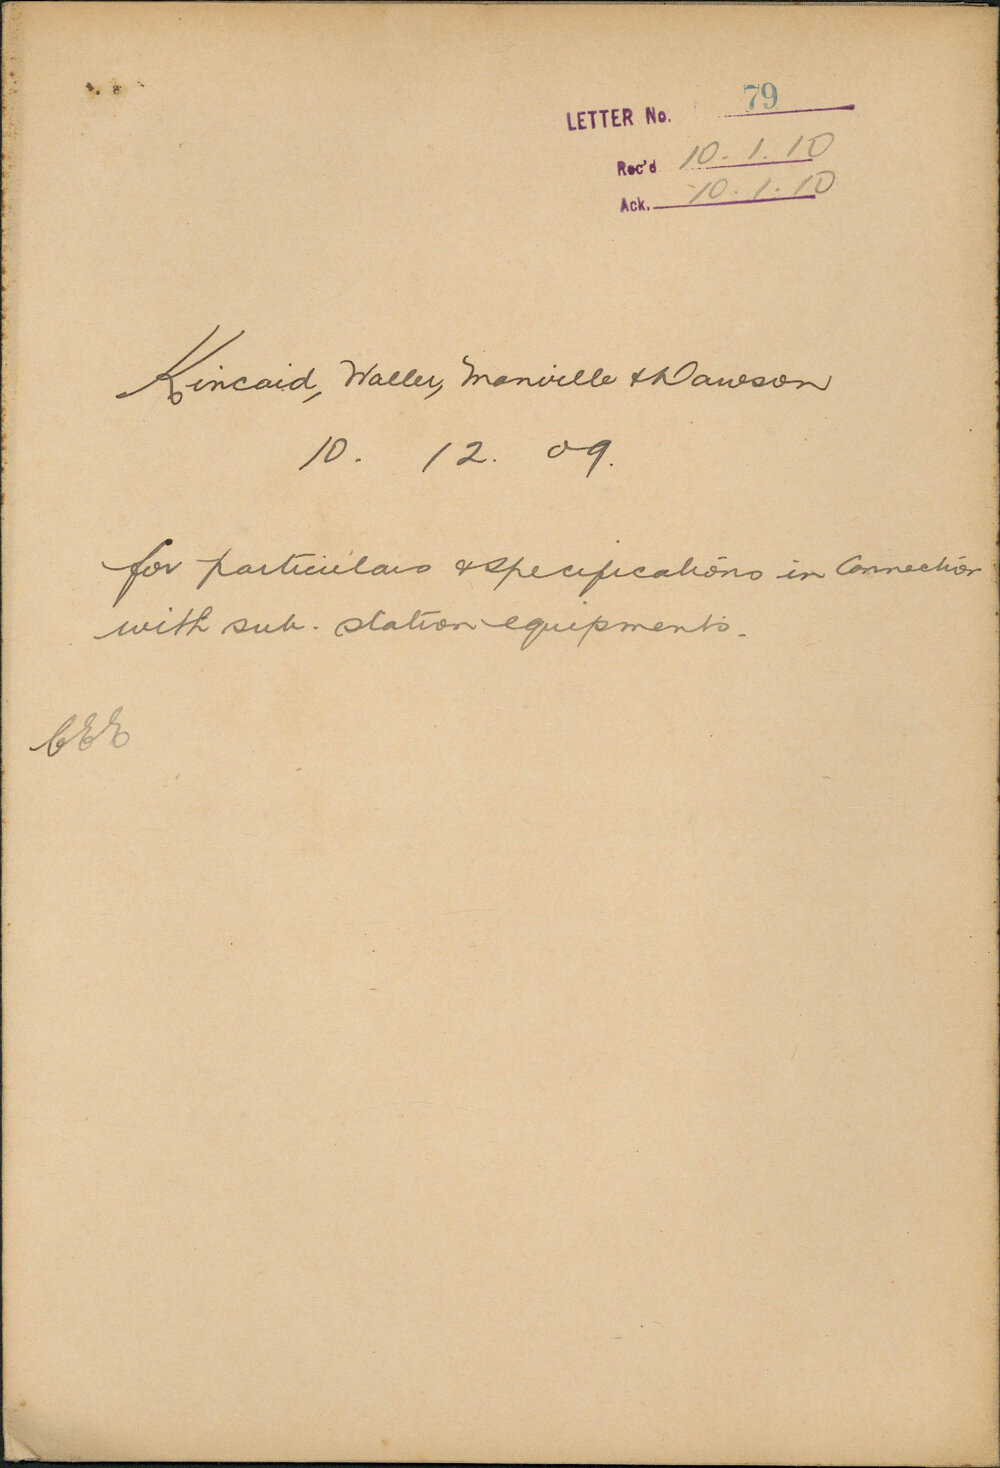 LETTER No. 79
Rec'd 10.1.10
Ack. 10.1.10
Kincaid, Waller, Manville & Dawson
10. 12. 09.
for particulars & specifications in Connection
with sub-station equipments.
CEE